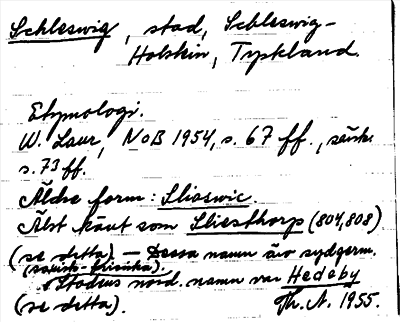 Schleswig, stad, Schleswig-
Holstein, Tyskland.
Etymologi.
W. Laur, NoB 1954, s. 67 ff., särsk.
s. 73 ff.
Äldre form: Sliaswic.
Älst känt som Sliesthorp (804, 808)
(se detta). — Dessa namn äro sydgerm.
(saxisk-frisiska).
Stadens nord. namn var Hedeby
(se detta). Th. A. 1955.